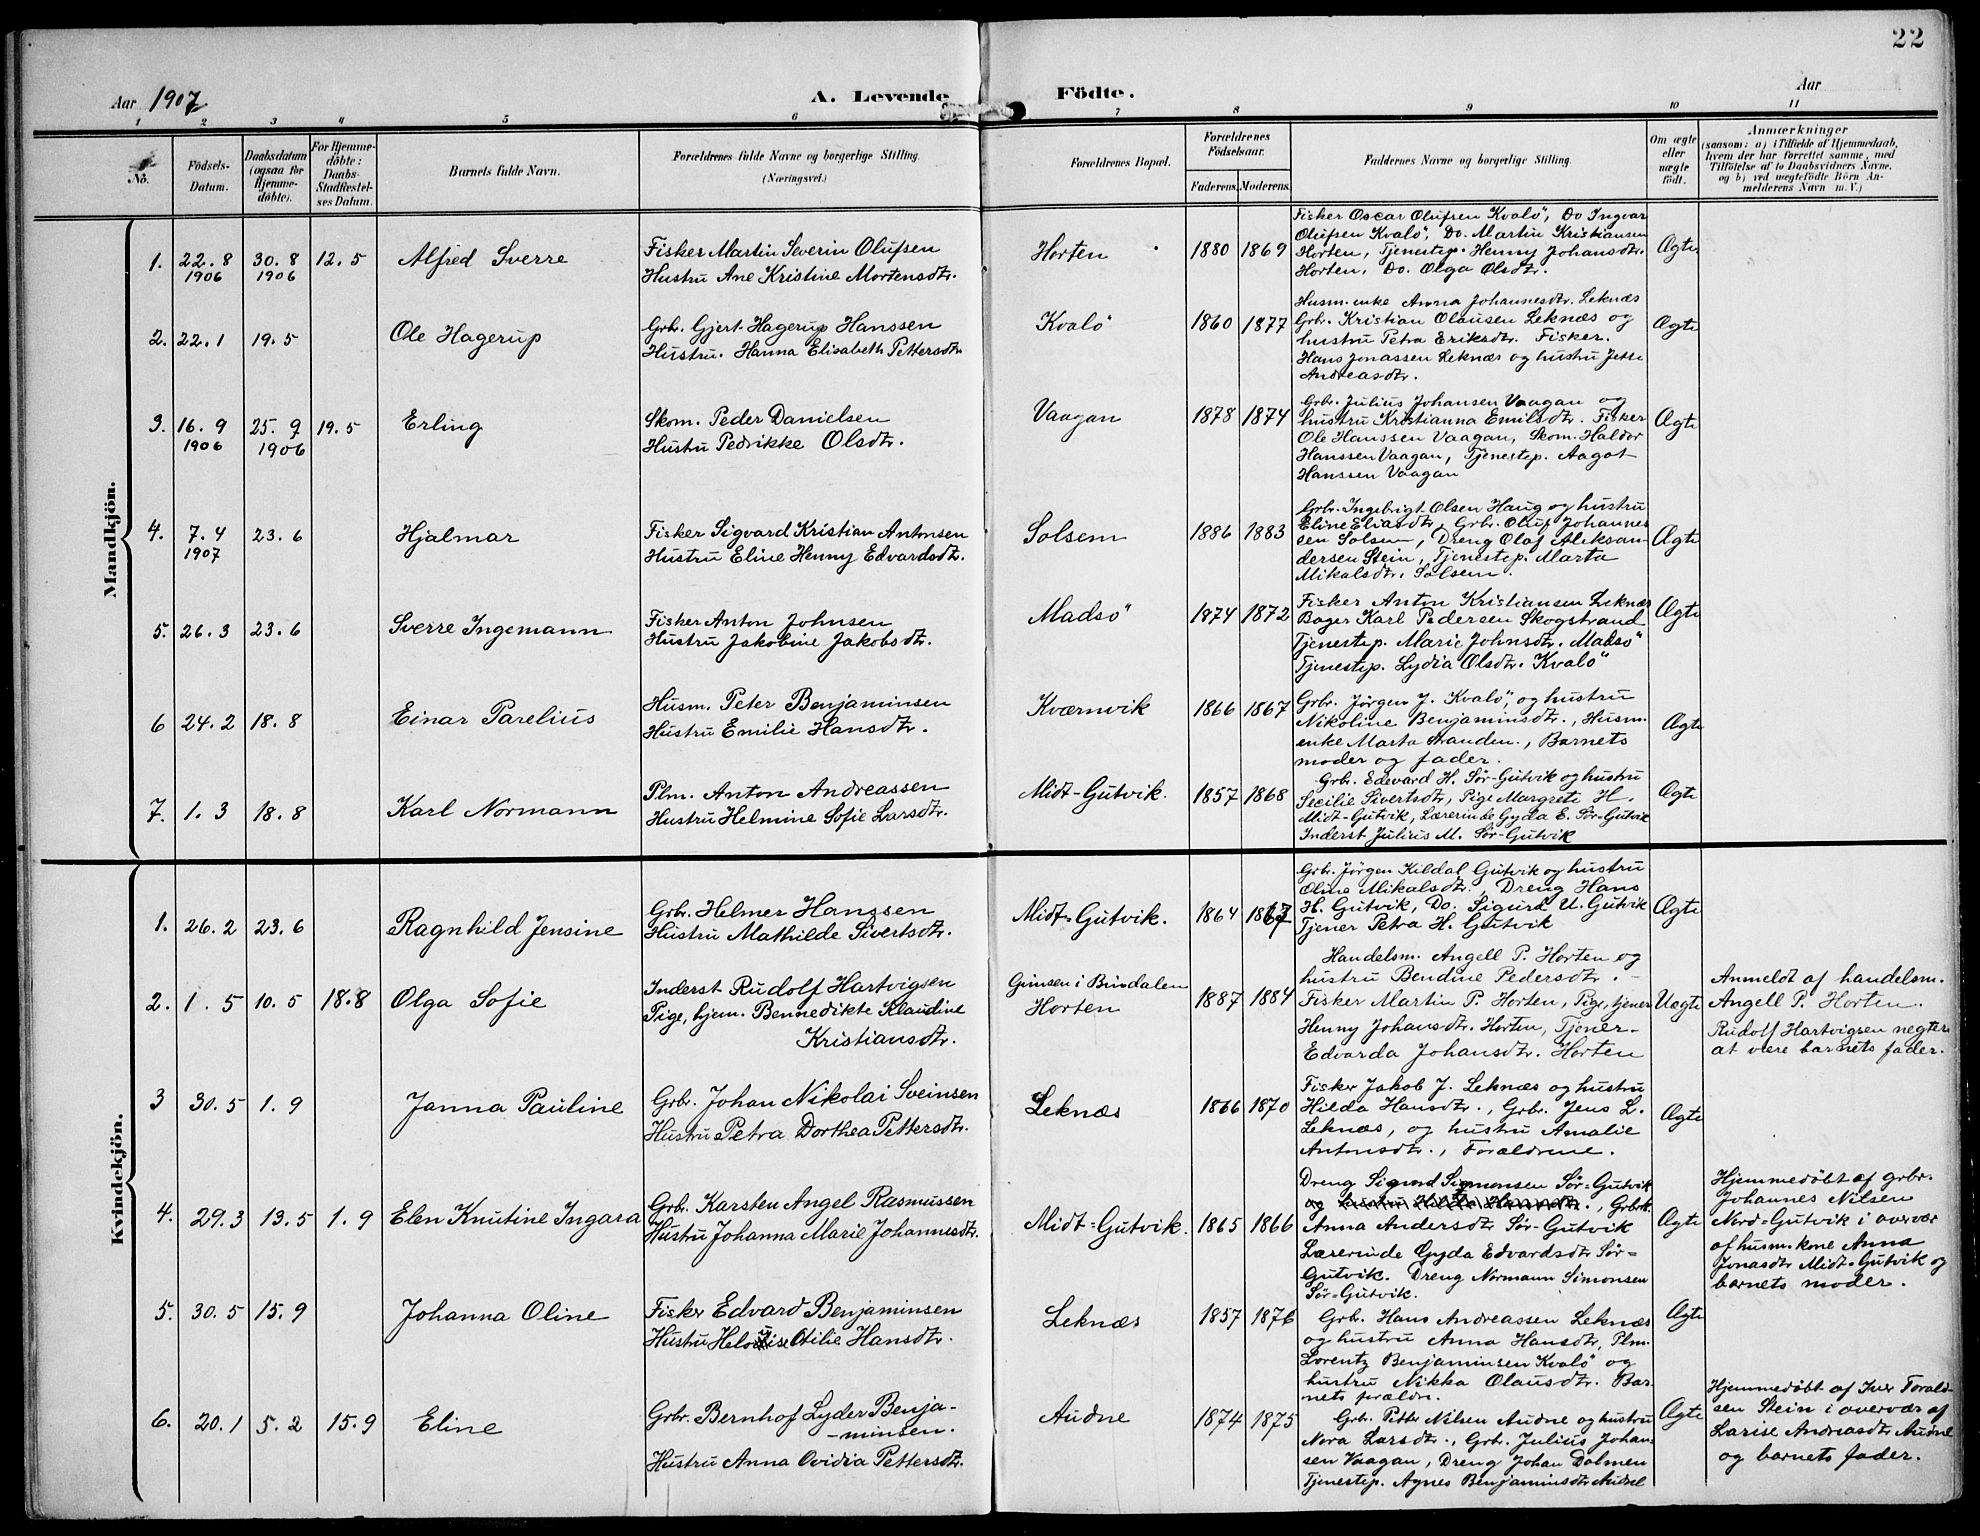 22
Aar 1907
A. Levende Födte.
Aar
1 2 3 4 5 6 7 8 9 10 11
No.
Födsels-Datum.
Daabsdatum (ogsaa for Hjemme-döbte).
For Hjemme-döbte: Daabs-Stadfæstel-ses Datum.
Barnets fulde Navn.
Forældrenes fulde Navne og borgerlige Stilling.
(Næringsvei.)
Forældrenes Bopæl.
Forældrenes Födselsaar.
Faderens. Moderens.
Faddernes Navne og borgerlige Stilling.
Om ægte eller uægte födt.
Anmærkninger
(saasom: a) i Tilfælde af Hjemmedaab, hvem der har forrettet samme, med Tilföielse af to Daabsvidners Navne, og b) ved uægtefödte Börn An-melderens Navn m. V.)
Mandkjön.
1. 22.8 1906 30.8 1906 12.5 Alfred Sverre
Fisker Martin Severin Olufsen
Hustru Ane Kristine Mortensdtr.
Horten 1880 1869
Fisker Oscar Olufsen Kvalö, Do Ingvar
Olufsen Kvalö, Do. Martin Kristiansen
Horten, Tjenestep. Henny Johansdtr.
Horten, Do. Olga Olsdtr.
Ægte
2. 22.1 19.5 Ole Hagerup
Grbr. Gjert Hagerup Hanssen
Hustru. Hanna Elisabeth Pettersdtr.
Kvalö 1860 1877
Husm.enke Anna Johannesdtr. Leknæs
Grbr. Kristian Olausen Leknæs og
hustru Petra Eriksdtr. Fisker.
Hans Jonassen Leknæs og hustru
Andreasdtr.
Ægte
3. 16.9 1906 25.9 1906 19.5 Erling
Skom. Peder Danielsen
Hustru Pedrikke Olsdtr.
Vaagan 1878 1874
Grbr. Julius Johansen Vaagan og
hustru Kristianna Emilsdtr. Fisker
Ole Hanssen Vaagan, Skom. Haldor
Hanssen Vaagan, Tjenestep. Aagot
Hanssen Vaagan
Ægte
4. 7.4 1907 23.6 Hjalmar
Fisker Sigvard Kristian Antonsen
Hustru Eline Henny Edvardsdtr.
Solsem 1886 1883
Grbr. Ingebrigt Olsen Haug og hustru
Eline Eliasdtr, Grbr. Oluf Johannes
sen Solsem, Dreng Olaf Aleksan-
dersen Stein, Tjenestep. Marta
Mikalsdtr. Solsem.
Ægte
5. 26.3 23.6 Sverre Ingemann
Fisker Anton Johnsen
Hustru Jakobine Jakobsdtr.
Madsö 1874 1872
Fisker Anton Kristiansen Leknæs
Bager Karl Pedersen Skogstrand
Tjenestep. Marie Johnsdtr. Madsö
Tjenestep. Lydia Olsdtr. Kvalö
Ægte
6 24.2 18.8 Einar Parelius
Husm. Peter Benjaminsen
Hustru Emilie Hansdtr.
Kværnvik 1866 1867
Grbr. Jörgen J. Kvalö, og hustru
Nikoline Benjaminsdtr., Husm.
enke Marta Stranden., Barnets
moder og fader.
Ægte
7. 1.3 18.8 Karl Normann
Plm. Anton Andreassen
Hustru Helmine Sofie Larsdtr.
Midt-Gutvik. 1857 1868
Grbr. Edevard H. Sör-Gutvik og hustru
Secilie Sivertsdtr, Pige Margrete H.
Midt-Gutvik, Lærerinde Gyda E. Sör-Gutvik
Inderst Julius M. Sör-Gutvik
Ægte
Kvindekjön.
1. 26.2 23.6 Ragnhild Jensine
Grbr. Helmer Hanssen
Hustru Mathilde Sivertsdtr.
Midt-Gutvik. 1864 1867
Grbr. Jörgen Kildal Gutvik og hustru
Oline Mikalsdtr., Dreng Hans
H. Gutvik, Do. Sigurd U. Gutvik
Tjener Petra H. Gutvik
Ægte
2. 1.5 10.5 18.8 Olga Sofie
Inderst Rudolf Hartvigsen
Pige, hjem. Bennedikte Klaudine
Kristiansdtr.
Gimsen i Bindalen
Horten 1887 1884
Handelsm. Angell P. Horten og
hustru Bendine Pedersdtr.
Fisker Martin P. Horten, Pige, tjener
Henny Johansdtr. Horten, Tjener-
Edvarda Johansdtr. Horten
Uægte
Anmeldt af handelsm.
Angell P. Horten.
Rudolf Hartvigsen negter
at være barnets fader.
3 30.5 1.9 Janna Pauline
Grbr. Johan Nikolai Sveinsen
Hustru Petra Dorthea Pettersdtr.
Leknæs 1866 1870
Fisker Jakob J. Leknæs og hustru
Hilda Hansdtr., Grbr. Jens L.
Leknæs, og hustru Amalie
Antonsdtr., Forældrene.
Ægte
4. 29.3 13.5 1.9 Elen Knutine Ingara
Grbr. Karsten Angel Rasmussen
Hustru Johanna Marie Johannesdtr.
Midt-Gutvik. 1865 1866
Dreng Sigurd Simonsen Sör-Gutvik
og hustru
Anna Andersdtr Sör-Gutvik
Lærerinde Gyda Edvardsdtr Sör-
Gutvik. Dreng Normann Simonsen
Sör-Gutvik.
Ægte
Hjemmedöbt af grbr.
Johannes Nilsen
Nord-Gutvik i overvær
af husm.kone Anna
Jonasdtr Midt-Gutvik og
barnets moder.
5. 30.5 15.9 Johanna Oline
Fisker Edvard Benjaminsen
Hustru Helovise Otilie Hansdtr.
Leknæs 1857 1876
Grbr. Hans Andreassen Leknæs
og hustru Anna Hansdtr, Plm.
Lorentz Benjaminsen Kvalö og
hustru Nikka Olausdtr. Bar-
nets forældre.
Ægte
6. 20.1 5.2 15.9 Eline
Grbr. Bernhof Lyder Benja-
-minsen.
Hustru Anna Ovidia Pettersdtr.
Audne 1874 1875
Grbr. Petter Nilsen Audne og hustru
Nora Larsdtr., Grbr. Julius Johan-
sen Vaagan, Dreng Johan Dolmen
Tjenestep. Agnes Benjaminsdtr Audne
Ægte
Hjemmedöbt af Iver Torald-
sen Stein i overvær af
Larise Andreasdtr Audne
og barnets fader.